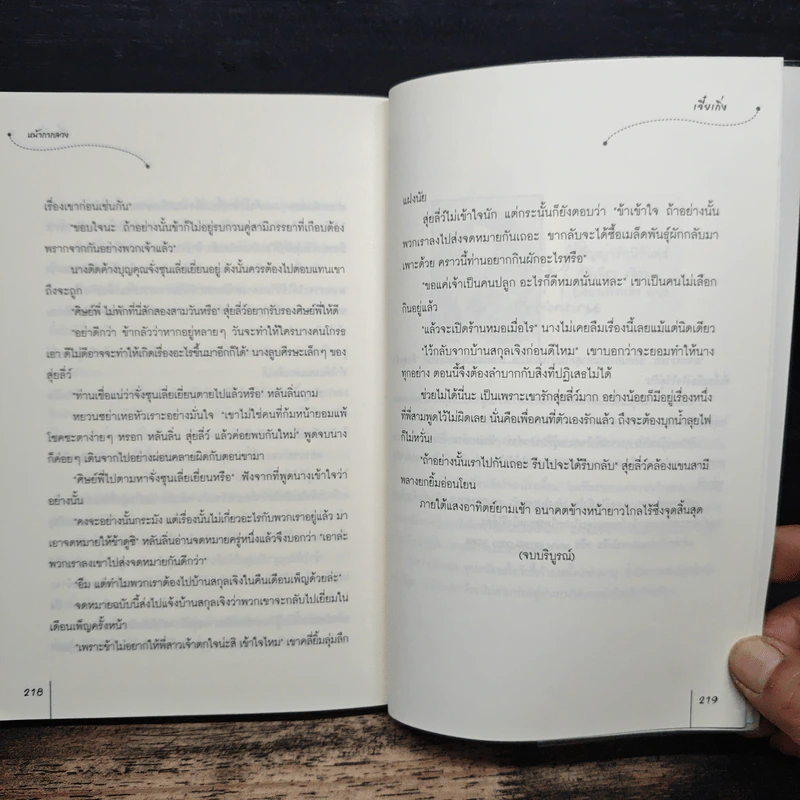 แม้จากลวง
เรื่องเขาก่อนเช่นกัน"
"ขอบใจนะ ถ้าอย่างนั้นข้าก็ไม่อยู่รบกวนคู่สามีภรรยาที่เกือบต้อง
พรากจากกันอย่างพวกเจ้าแล้ว"
นางติดค้างบุญคุณจั่งซุนเลี่ยเยี่ยนอยู่ ดังนั้นควรต้องไปตอบแทนเขา
ถึงจะถูก
"ศิษย์พี่ ไม่พักที่นี่สักสองสามวันหรือ" สุ่ยลี่ว์อยากรับรองศิษย์พี่ให้ดี
"อย่าดีกว่า ข้ากลัวว่าหากอยู่หลายๆ วันจะทำให้ใครบางคนโกรธ
เอา ดีไม่ดีอาจจะทำให้เกิดเรื่องอะไรขึ้นมาอีกก็ได้" นางลูบศีรษะเล็กๆ ของ
สุ่ยลี่ว์
"ท่านเชื่อแน่ว่าจั่งซุนเลี่ยเยี่ยนตายไปแล้วหรือ" หลันลิ่นถาม
หยวนซย่าเหอหัวเราะอย่างมั่นใจ "เขาไม่ใช่คนที่ก้มหน้ายอมแพ้
โชคชะตาง่ายๆ หรอก หลันลิ่น สุ่ยลี่ว์ แล้วค่อยพบกันใหม่" พูดจบนาง
ก็ค่อยๆ เดินจากไปอย่างผ่อนคลายผิดกับตอนขามา
"ศิษย์พี่ไปตามหาจั่งซุนเลี่ยเยี่ยนหรือ" ฟังจากที่พูดนางเข้าใจว่า
อย่างนั้น
"คงจะอย่างนั้นกระมัง แต่เรื่องนั้นไม่เกี่ยวอะไรกับพวกเราอยู่แล้ว มา
เอาจดหมายให้ข้าดูซิ" หลันลิ่นอ่านจดหมายครู่หนึ่งแล้วจึงบอกว่า "เอาล่ะ
พวกเราลงเขาไปส่งจดหมายกันดีกว่า"
"อืม แต่ทำไมพวกเราต้องไปบ้านสกุลเจิงในคืนเดือนเพ็ญด้วยล่ะ"
จดหมายฉบับนี้ส่งไปแจ้งบ้านสกุลเจิงว่าพวกเขาจะกลับไปเยี่ยมใน
เดือนเพ็ญครั้งหน้า
"เพราะข้าไม่อยากให้พี่สาวเจ้าตกใจน่ะสิ เข้าใจไหม" เขาคลี่ยิ้มลุ่มลึก
218
เจี๋ยเกิ่ง
แฝงนัย
สุ่ยลี่ว์ไม่เข้าใจนัก แต่กระนั้นก็ยังตอบว่า "ข้าเข้าใจ ถ้าอย่างนั้น
พวกเราลงไปส่งจดหมายกันเถอะ ขากลับจะได้ซื้อเมล็ดพันธุ์ผักกลับมา
เพาะด้วย คราวนี้ท่านอยากกินผักอะไรหรือ"
"ขอแค่เจ้าเป็นคนปลูก อะไรก็ดีหมดนั่นแหละ" เขาเป็นคนไม่เลือก
กินอยู่แล้ว
"แล้วจะเปิดร้านหมอเมื่อไร" นางไม่เคยลืมเรื่องนี้เลยแม้แต่นิดเดียว
"ไว้กลับจากบ้านสกุลเจิงก่อนดีไหม" เขาบอกว่าจะยอมทำให้นาง
ทุกอย่าง ตอนนี้จึงต้องลำบากกับสิ่งที่ปฏิเสธไม่ได้
ช่วยไม่ได้นี่นะ เป็นเพราะเขารักสุ่ยลี่ว์มาก อย่างน้อยก็มีอยู่เรื่องหนึ่ง
ที่พี่สามพูดไว้ไม่ผิดเลย นั่นคือเพื่อคนที่ตัวเองรักแล้ว ถึงจะต้องบุกน้ำลุยไฟ
ก็ไม่หวั่น!
"ถ้าอย่างนั้นเราไปกันเถอะ รีบไปจะได้รีบกลับ" สุ่ยลี่ว์คล้องแขนสามี
พลางยกยิ้มอ่อนโยน
ภายใต้แสงอาทิตย์ยามเช้า อนาคตข้างหน้ายาวไกลไร้ซึ่งจุดสิ้นสุด
(จบบริบูรณ์)
219